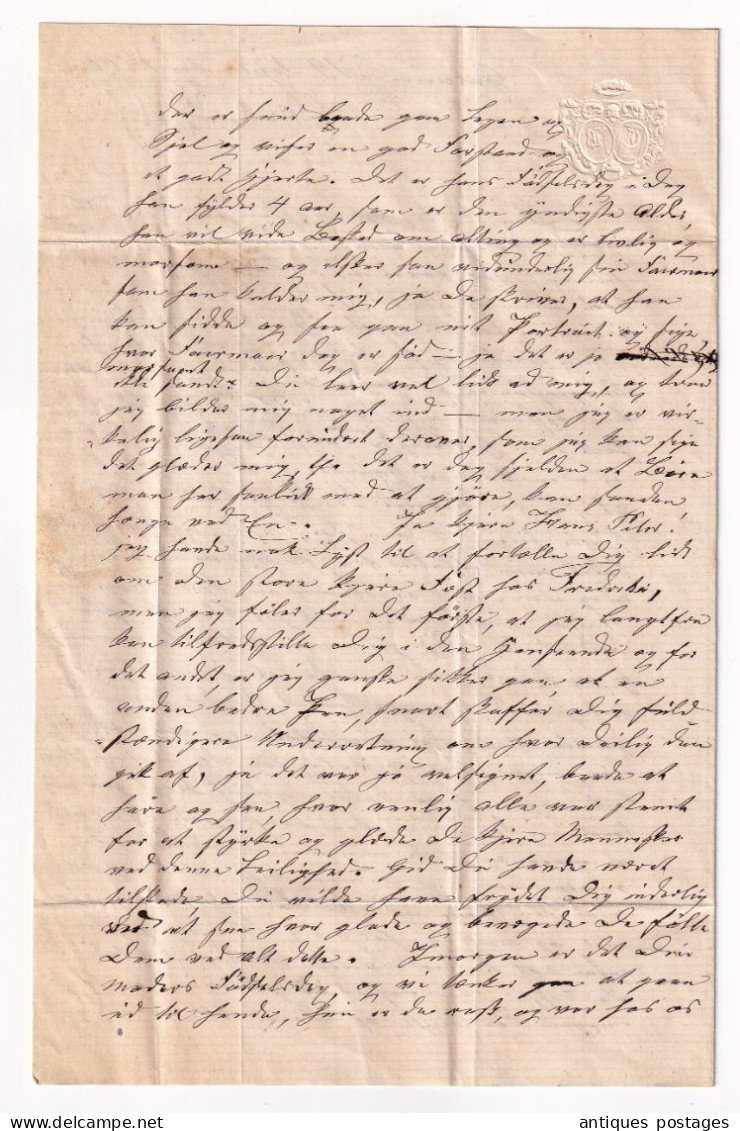 der er sund baade paa Legem og
Sjel og viser en god Forstand og
et godt Hjerte. Det er hans Födselsdag i Dag
han fylder 4 aar, som er den yndigste Alder,
han vil vide Besked om Alting og er livlig og
morsom — og elsker saa vidunderlig sin Faermoer
som han kalder mig, ja De skriver, at han
kan sidde og see paa mit Portrait og sige
hvor Faermoer dog er söd — ja det er jo
morsomt
ikke sandt? Du leer vel lidt ad mig, og troer
jeg bilder mig noget ind — men jeg er vir-
kelig ligesaa forundret derover, som jeg kan sige
det glæder mig, thi det er dog sjelden at Börn
man har saa lidt med at gjöre, kan saadan
hænge ved En. Ja kjære Hans Peter!
jeg havde nok Lyst til at fortælle Dig lidt
om den store kjære Fest hos Fredrik,
men jeg föler for det förste, at jeg langtfra
kan tilfredsstille Dig i den Henseende og for
det andet, er jeg ganske sikker paa, at en
anden bedre Pen, snart skaffer Dig fuld-
stændigere Underretning om hvor deilig den
gik af, ja det var jo velsignet, baade at
höre og see, hvor venlig alle var stemt
for at styrke og glæde de kjære Mennesker
ved denne Leilighed. Gid Du havde været
tilstede, Du vilde have frydet Dig inderlig
ved at see hvor glade og bevægede De fölte
Dem ved alt dette. Imorgen er det Din
Moders Födselsdag, og vi tænker paa at gaae
ud til hende, hun er da rask, og var hos os
antiques postages